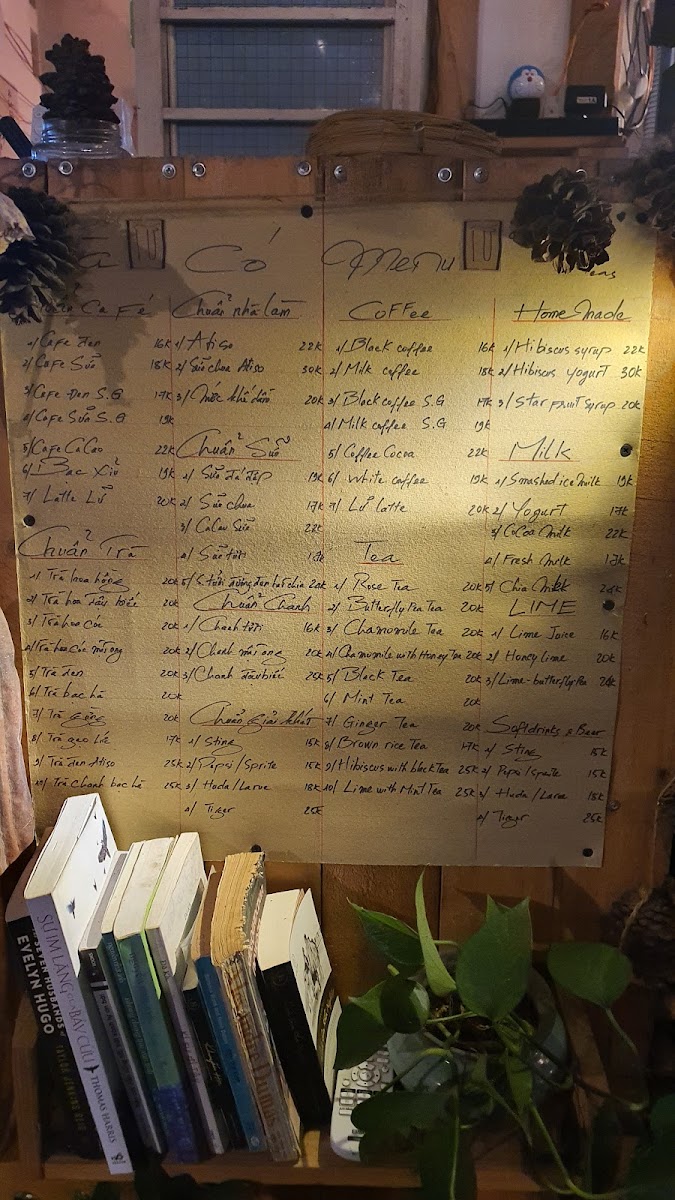 Có Menu
Cà Fé
1/ Cafe đen 16K
2/ Cafe Sữa 18K
3/ Cafe Đen S.G 17K
4/ Cafe Sữa S.G 19K
5/ Cafe CaCao 22K
6/ Bạc Xỉu 19K
7/ Latte Lủ 20K
Chuẩn Trà
1/ Trà hoa hồng 20K
2/ Trà hoa đậu biếc 20K
3/ Trà hoa cúc 20K
4/ Trà hoa cúc mật ong 20K
5/ Trà đen 20K
6/ Trà bạc hà 20K
7/ Trà gừng 20K
8/ Trà gạo lức 17K
9/ Trà đen Atiso 25K
10/ Trà chanh bạc hà 25K
Chuẩn nhà làm
1/ Atiso 22K
2/ Sữa chua Atiso 30K
3/ Nước khế 20K
Chuẩn Sữa
1/ Sữa đá đập 19K
2/ Sữa chua 17K
3/ CaCao Sữa 22K
4/ Sữa tươi 17K
5/ Sữa tươi đường đen hạt chia 20K
Chuẩn Chanh
1/ Chanh tươi 16K
2/ Chanh mật ong 20K
3/ Chanh đậu biếc 20K
Chuẩn giải khát
1/ Sting 15K
2/ Pepsi / Sprite 15K
3/ Huda / Larue 18K
4/ Tiger 25K
Coffee
1/ Black coffee 16K
2/ Milk coffee 18K
3/ Black coffee S.G 17K
4/ Milk coffee S.G 19K
5/ Coffee Cocoa 22K
6/ White coffee 19K
7/ Lủ latte 20K
Tea
1/ Rose Tea 20K
2/ Butterfly Pea Tea 20K
3/ Chamomile Tea 20K
4/ Chamomile with Honey Tea 20K
5/ Black Tea 20K
6/ Mint Tea 20K
7/ Ginger Tea 20K
8/ Brown rice Tea 17K
9/ Hibiscus with black Tea 25K
10/ Lime with Mint Tea 25K
Home Made
1/ Hibiscus syrup 22K
2/ Hibiscus Yogurt 30K
3/ Star fruit Syrup 20K
Milk
1/ Smashed ice milk 19K
2/ Yogurt 17K
3/ CoCoa Milk 22K
4/ Fresh Milk 17K
5/ Chia Milk 20K
LIME
1/ Lime Juice 16K
2/ Honey lime 20K
3/ Lime-butterfly Pea 20K
Softdrinks & Beer
1/ Sting 15K
2/ Pepsi / Sprite 15K
3/ Huda / Larue 18K
4/ Tiger 25K
SEVEN HUSBANDS
EVELYN HUGO
TAYLOR JENKINS REID
SỰ IM LẶNG CỦA BẦY CỪU THOMAS HARRIS